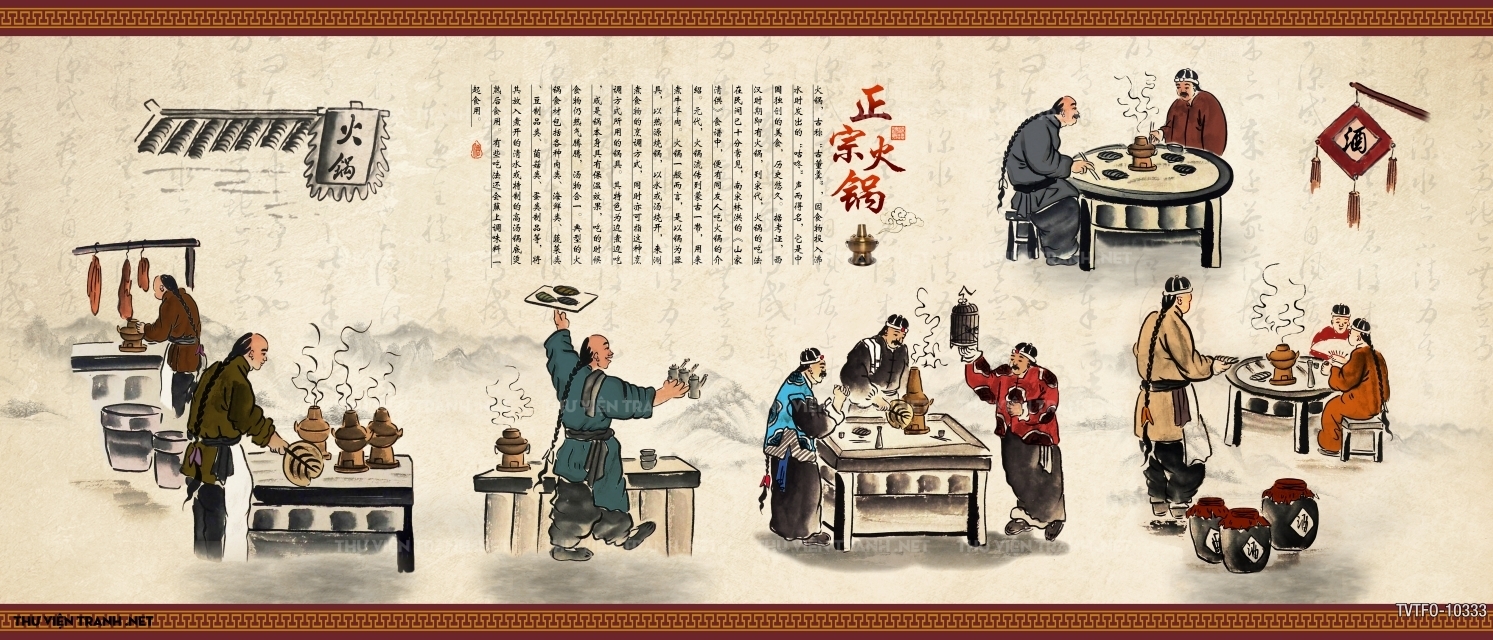 火锅
正宗火锅
火锅，古称：古董羹"，因食物投入沸
水时发出的：咕咚：声而得名，它是中
国独创的美食，历史悠久。据考证，西
汉时期即有火锅，到宋代，火锅的吃法
在民间已十分常见，南宋林洪的《山家
清供》食谱中，便有同友人吃火锅的介
绍。元代，火锅流传到蒙古一带，用来
煮牛羊肉。火锅一般而言，是以锅为器
具，以热源烧锅，以水或汤烧开，来涮
煮食物的烹调方式，同时亦可指这种烹
调方式所用的锅具。其特色为边煮边吃
，或是锅本身具有保温效果，吃的时候
食物仍热气腾腾，汤物合一。典型的火
锅食材包括各种肉类、海鲜类、蔬菜类
、豆制品类、菌菇类、蛋类制品等，将
其放入煮开的清水或特制的高汤锅底烫
熟后食用。有些吃法还会蘸上调味料一
起食用。
酒
酒
酒
酒
THƯ VIỆN TRANH .NET
THƯ VIỆN TRANH .NET
THƯ VIỆN TRANH .NET
TVTFO-10333